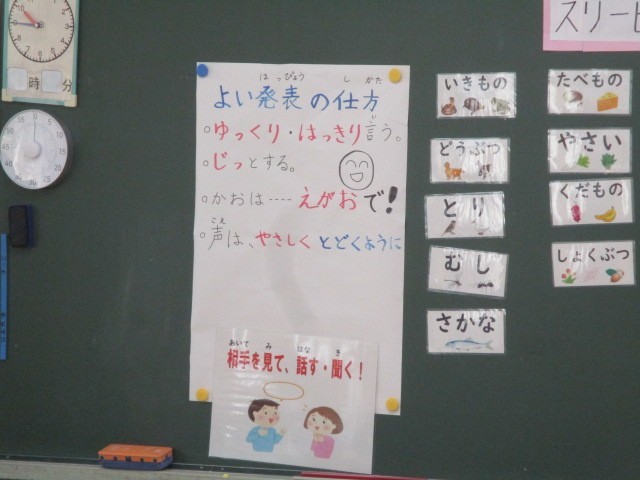 時 分
はっぴょう し かた
よい発表の仕方
い
ゆっくり・はっきり言う。
じっとする。
かおは----えがおで!
こえ
声は、やさしくとどくように
あいて み はな き
相手を見て、話す・聞く!
いきもの
どうぶつ
とり
むし
さかな
たべもの
やさい
くだもの
しょくぶつ